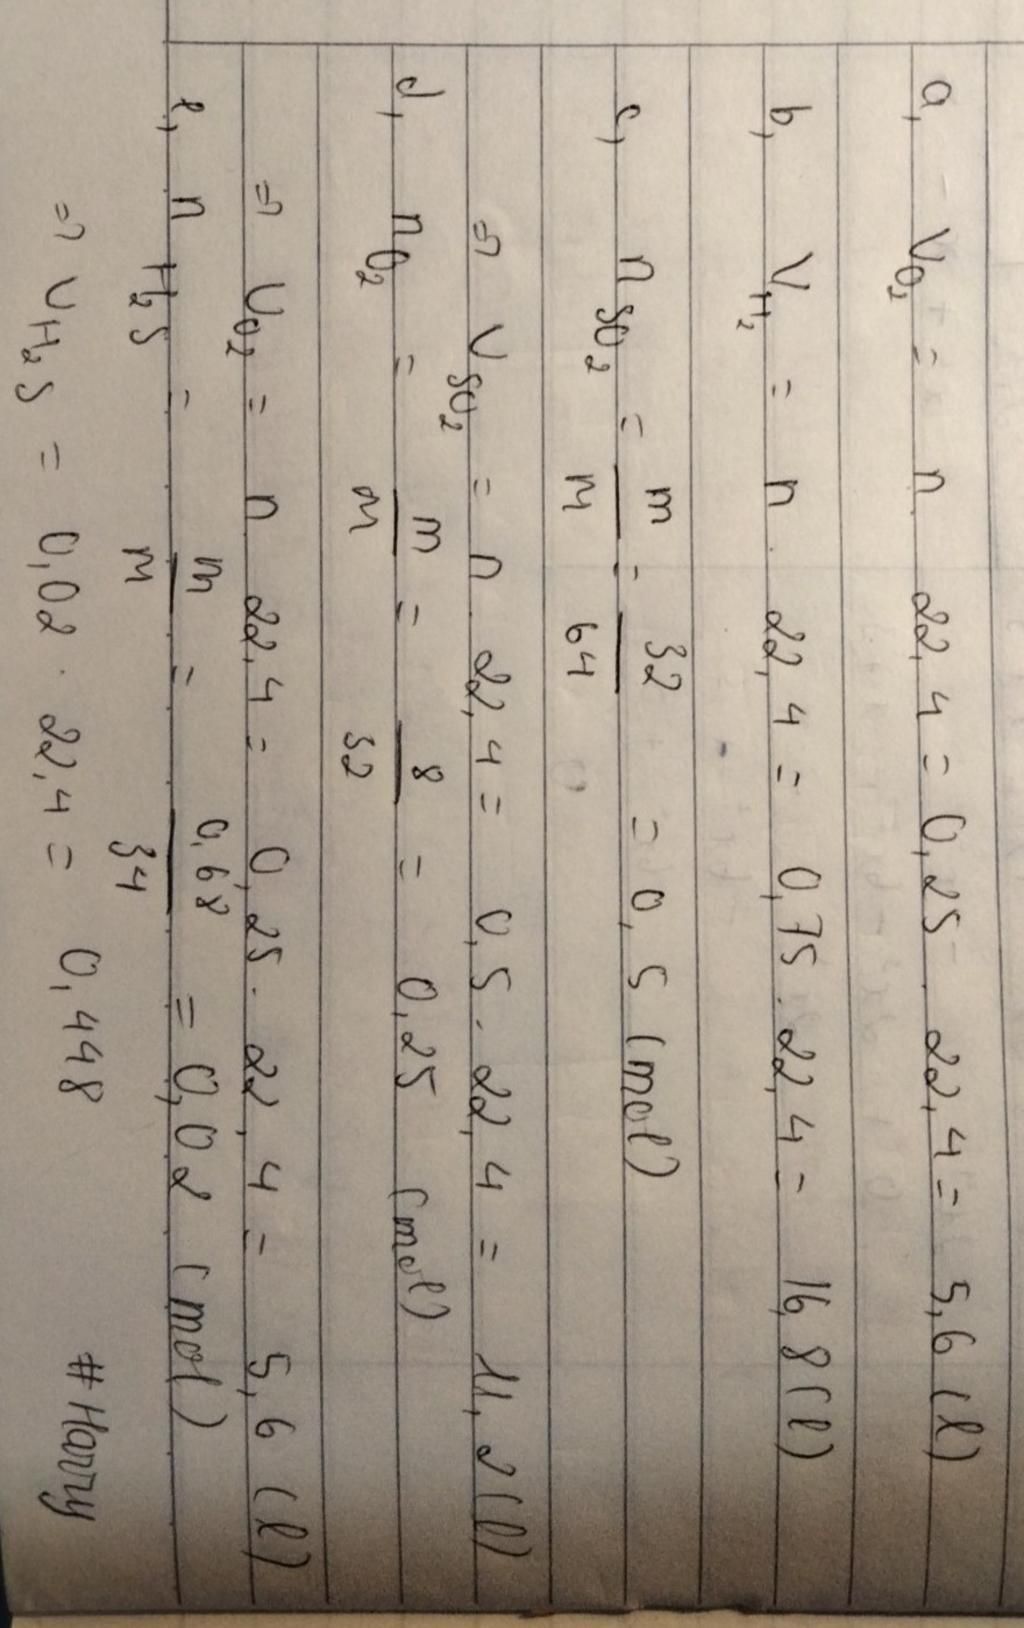 a, V O2 = n. 22,4 = 0,25. 22,4 = 5,6 (l)
b, V H2 = n. 22,4 = 0,75. 22,4 = 16,8 (l)
c, n SO2 = m/M = 32/64 = 0,5 (mol)
=> V SO2 = n. 22,4 = 0,5. 22,4 = 11,2 (l)
d, n O2 = m/M = 8/32 = 0,25 (mol)
=> V O2 = n 22,4 = 0,25. 22,4 = 5,6 (l)
e, n H2S = m/M = 0,68/34 = 0,02 (mol)
=> V H2S = 0,02. 22,4 = 0,448
# Harry